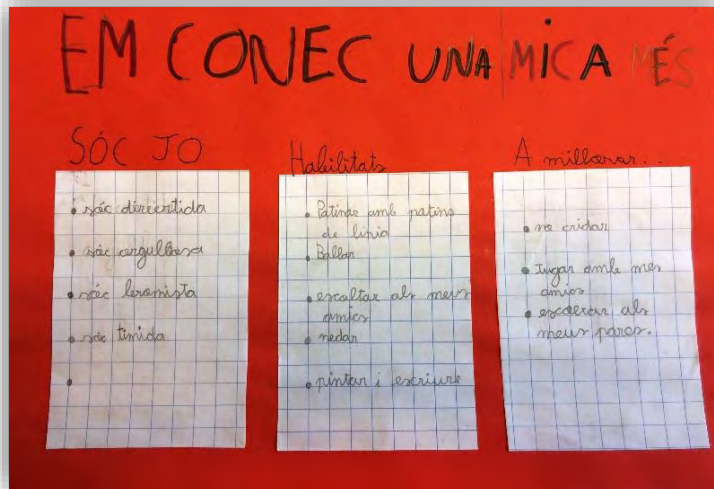 EM CONEC UNA MICA MÉS
SÓC JO
• sóc divertida
• sóc orgullosa
• sóc bromista
• sóc timida
•
Habilitats
• Patinar amb patins
de linia
• Ballar
• escoltar als meus
amics
• nedar
• pintar i escriure
A millorar...
• no cridar
• Jugar amb mes
amics
• escoltar als
meus pares.